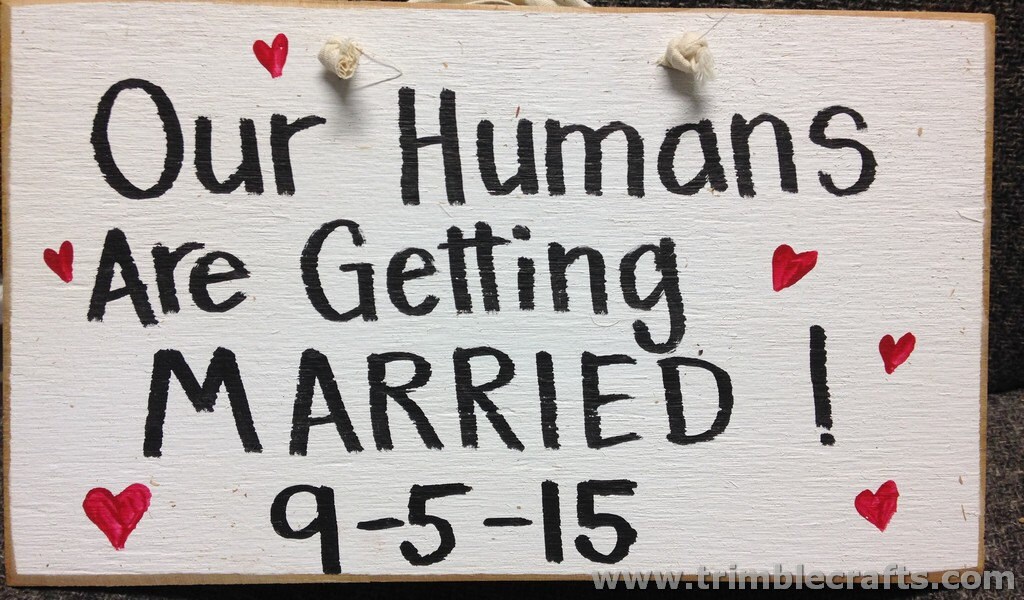 Our Humans
Are Getting
MARRIED !
9-5-15
www.trimblecrafts.com